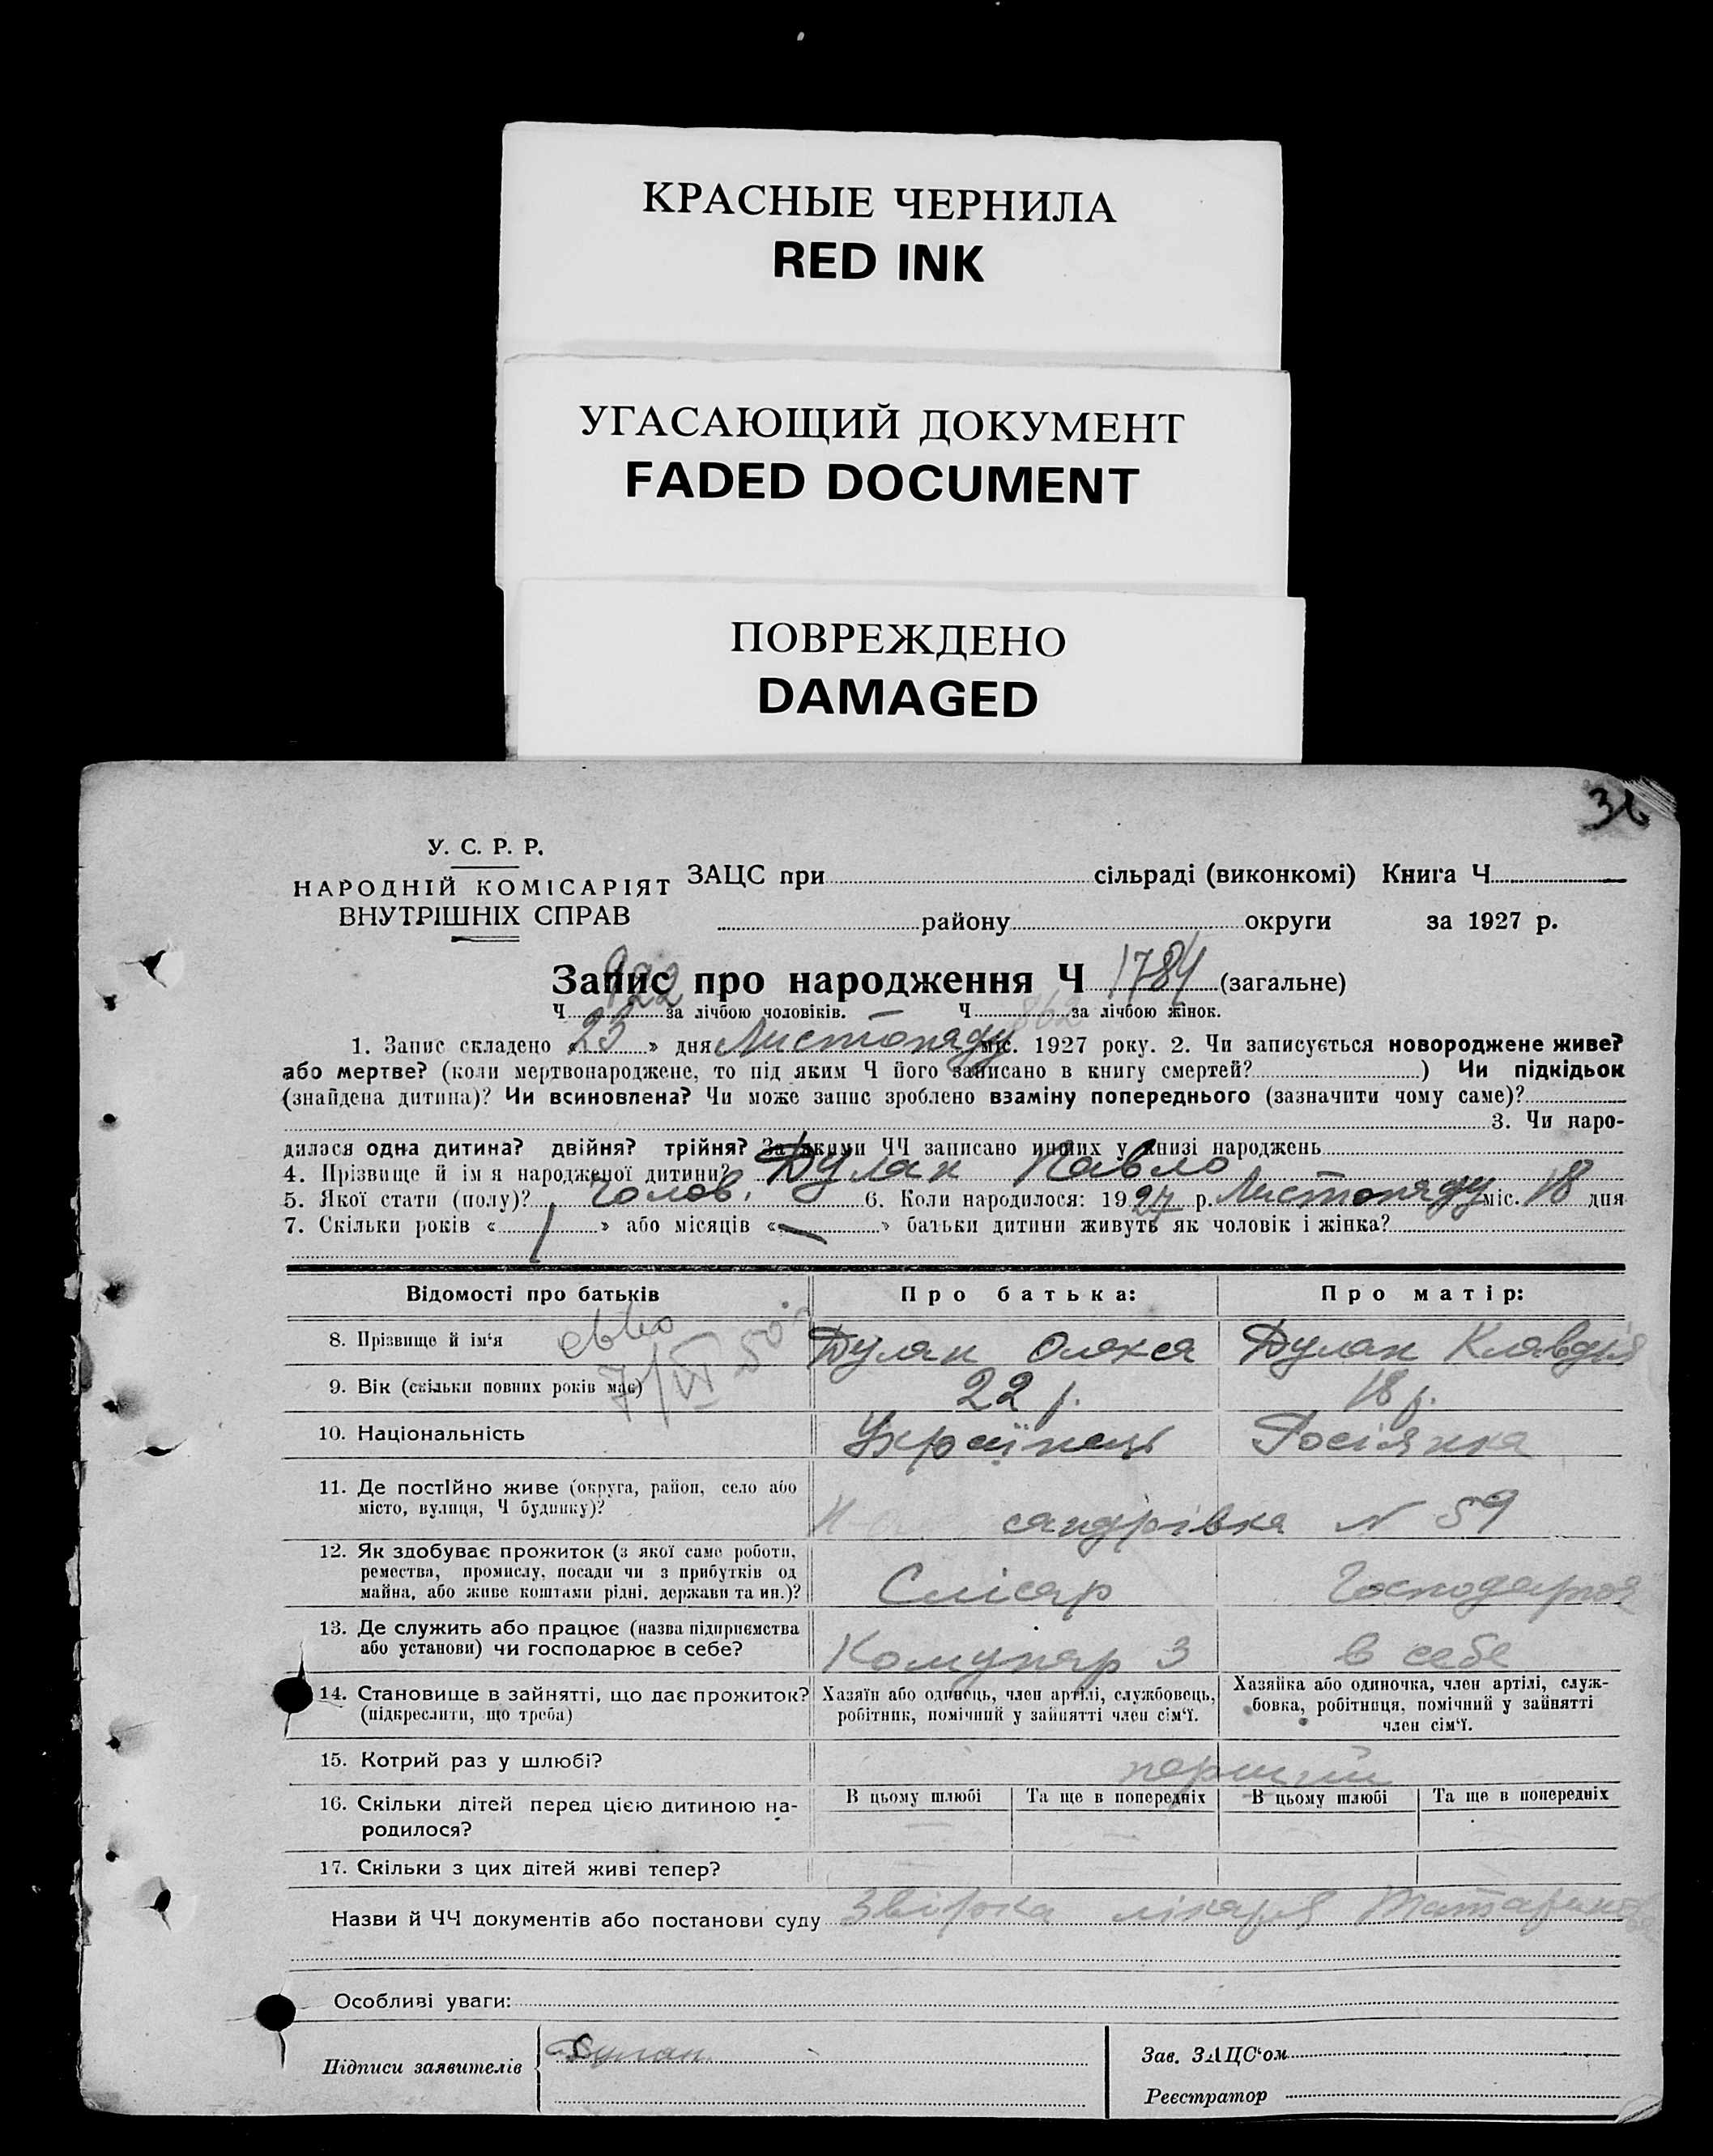 КРАСНЫЕ ЧЕРНИЛА
RED INK
УГАСАЮЩИЙ ДОКУМЕНТ
FADED DOCUMENT
ПОВРЕЖДЕНО
DAMAGED
У. С. Р. Р.
НАРОДНІЙ КОМІСАРІЯТ
ВНУТРІШНІХ СПРАВ
ЗАЦС при сільраді (виконкомі) Книга Ч
району округи за 1927 р.
922
Запис про народження Ч 1784 (загальне)
Ч за лічбою чоловіків. Ч 862 за лічбою жінок.
1. Запис складено « 23 » дня Листопаду міс. 1927 року. 2. Чи записується новороджене живе?
або мертве? (коли мертвонароджене, то під яким Ч його записано в книгу смертей? ) Чи підкідьок
(знайдена дитина)? Чи всиновлена? Чи може запис зроблено взаміну попереднього (зазначити чому саме)?
3. Чи наро-
дилася одна дитина? двійня? трійня? За якими ЧЧ записано инших у книзі народжень
4. Прізвище й ім я народженої дитини? Дулан Павло
5. Якої стати (полу)? Чолов. 6. Коли народилося: 1927 р. Листопаду міс. 18 дня
7. Скільки років « 1 » або місяців « — » батьки дитини живуть як чоловік і жінка?
Відомості про батьків Про батька: Про матір:
8. Прізвище й ім‘я Дулан Олекса Дулан Клавдія
9. Вік (скільки повних років має) 22 р. 18 р.
10. Національність Українець Росіянка
11. Де постійно живе (округа, район, село або
місто, вулиця, Ч будинку)? сандрівка N 59
12. Як здобуває прожиток (з якої саме роботи,
ремества, промислу, посади чи з прибутків од
майна, або живе коштами рідні, держави та ин.)? Слісар Господарка
13. Де служить або працює (назва підприємства
або установи) чи господарює в себе? Комунар 3 в себе
14. Становище в зайнятті, що дає прожиток?
(підкреслити, що треба)
Хазяїн або одинець, член артілі, службовець,
робітник, помічний у зайнятті член сім‘ї.
Хазяйка або одиночка, член артілі, служ-
бовка, робітниця, помічний у зайнятті
член сім‘ї.
15. Котрий раз у шлюбі? перший
16. Скільки дітей перед цією дитиною на-
родилося?
В цьому шлюбі Та ще в попередніх В цьому шлюбі Та ще в попередніх
17. Скільки з цих дітей живі тепер?
Назви й ЧЧ документів або постанови суду Звірка лікаря
Особливі уваги:
Підписи заявителів Дулан
Зав. ЗАЦС‘ом
Реєстратор